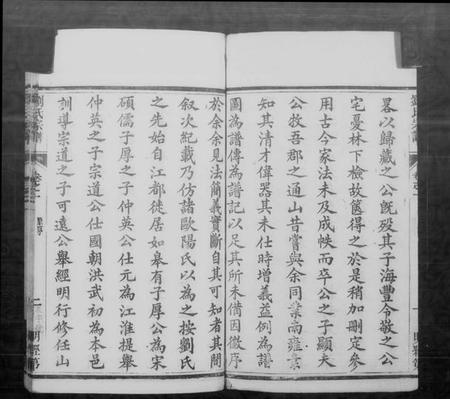 畧以歸藏之公既殁其子海豐令敬之公
宅憂林下檢故篋得之於是稍加刪定參
用古今家法未及成帙而卒公之子顯夫
公牧吾郡之通山昔嘗與余同業而雍素
知其清才偉器其未仕時增義益例為譜
圖為譜傳為譜記以足其所未備因徵序
於余余見法簡義實斷自其可知者其間
叙次紀載乃仿諸歐陽氏以為之按劉氏
之先始自江都徒居如皋有子厚公為宋
碩儒子厚之子仲英公仕元為江淮提舉
仲英之子宗道公仕國朝洪武初為本邑
訓導宗道之子可遠公舉經明行修任山
二